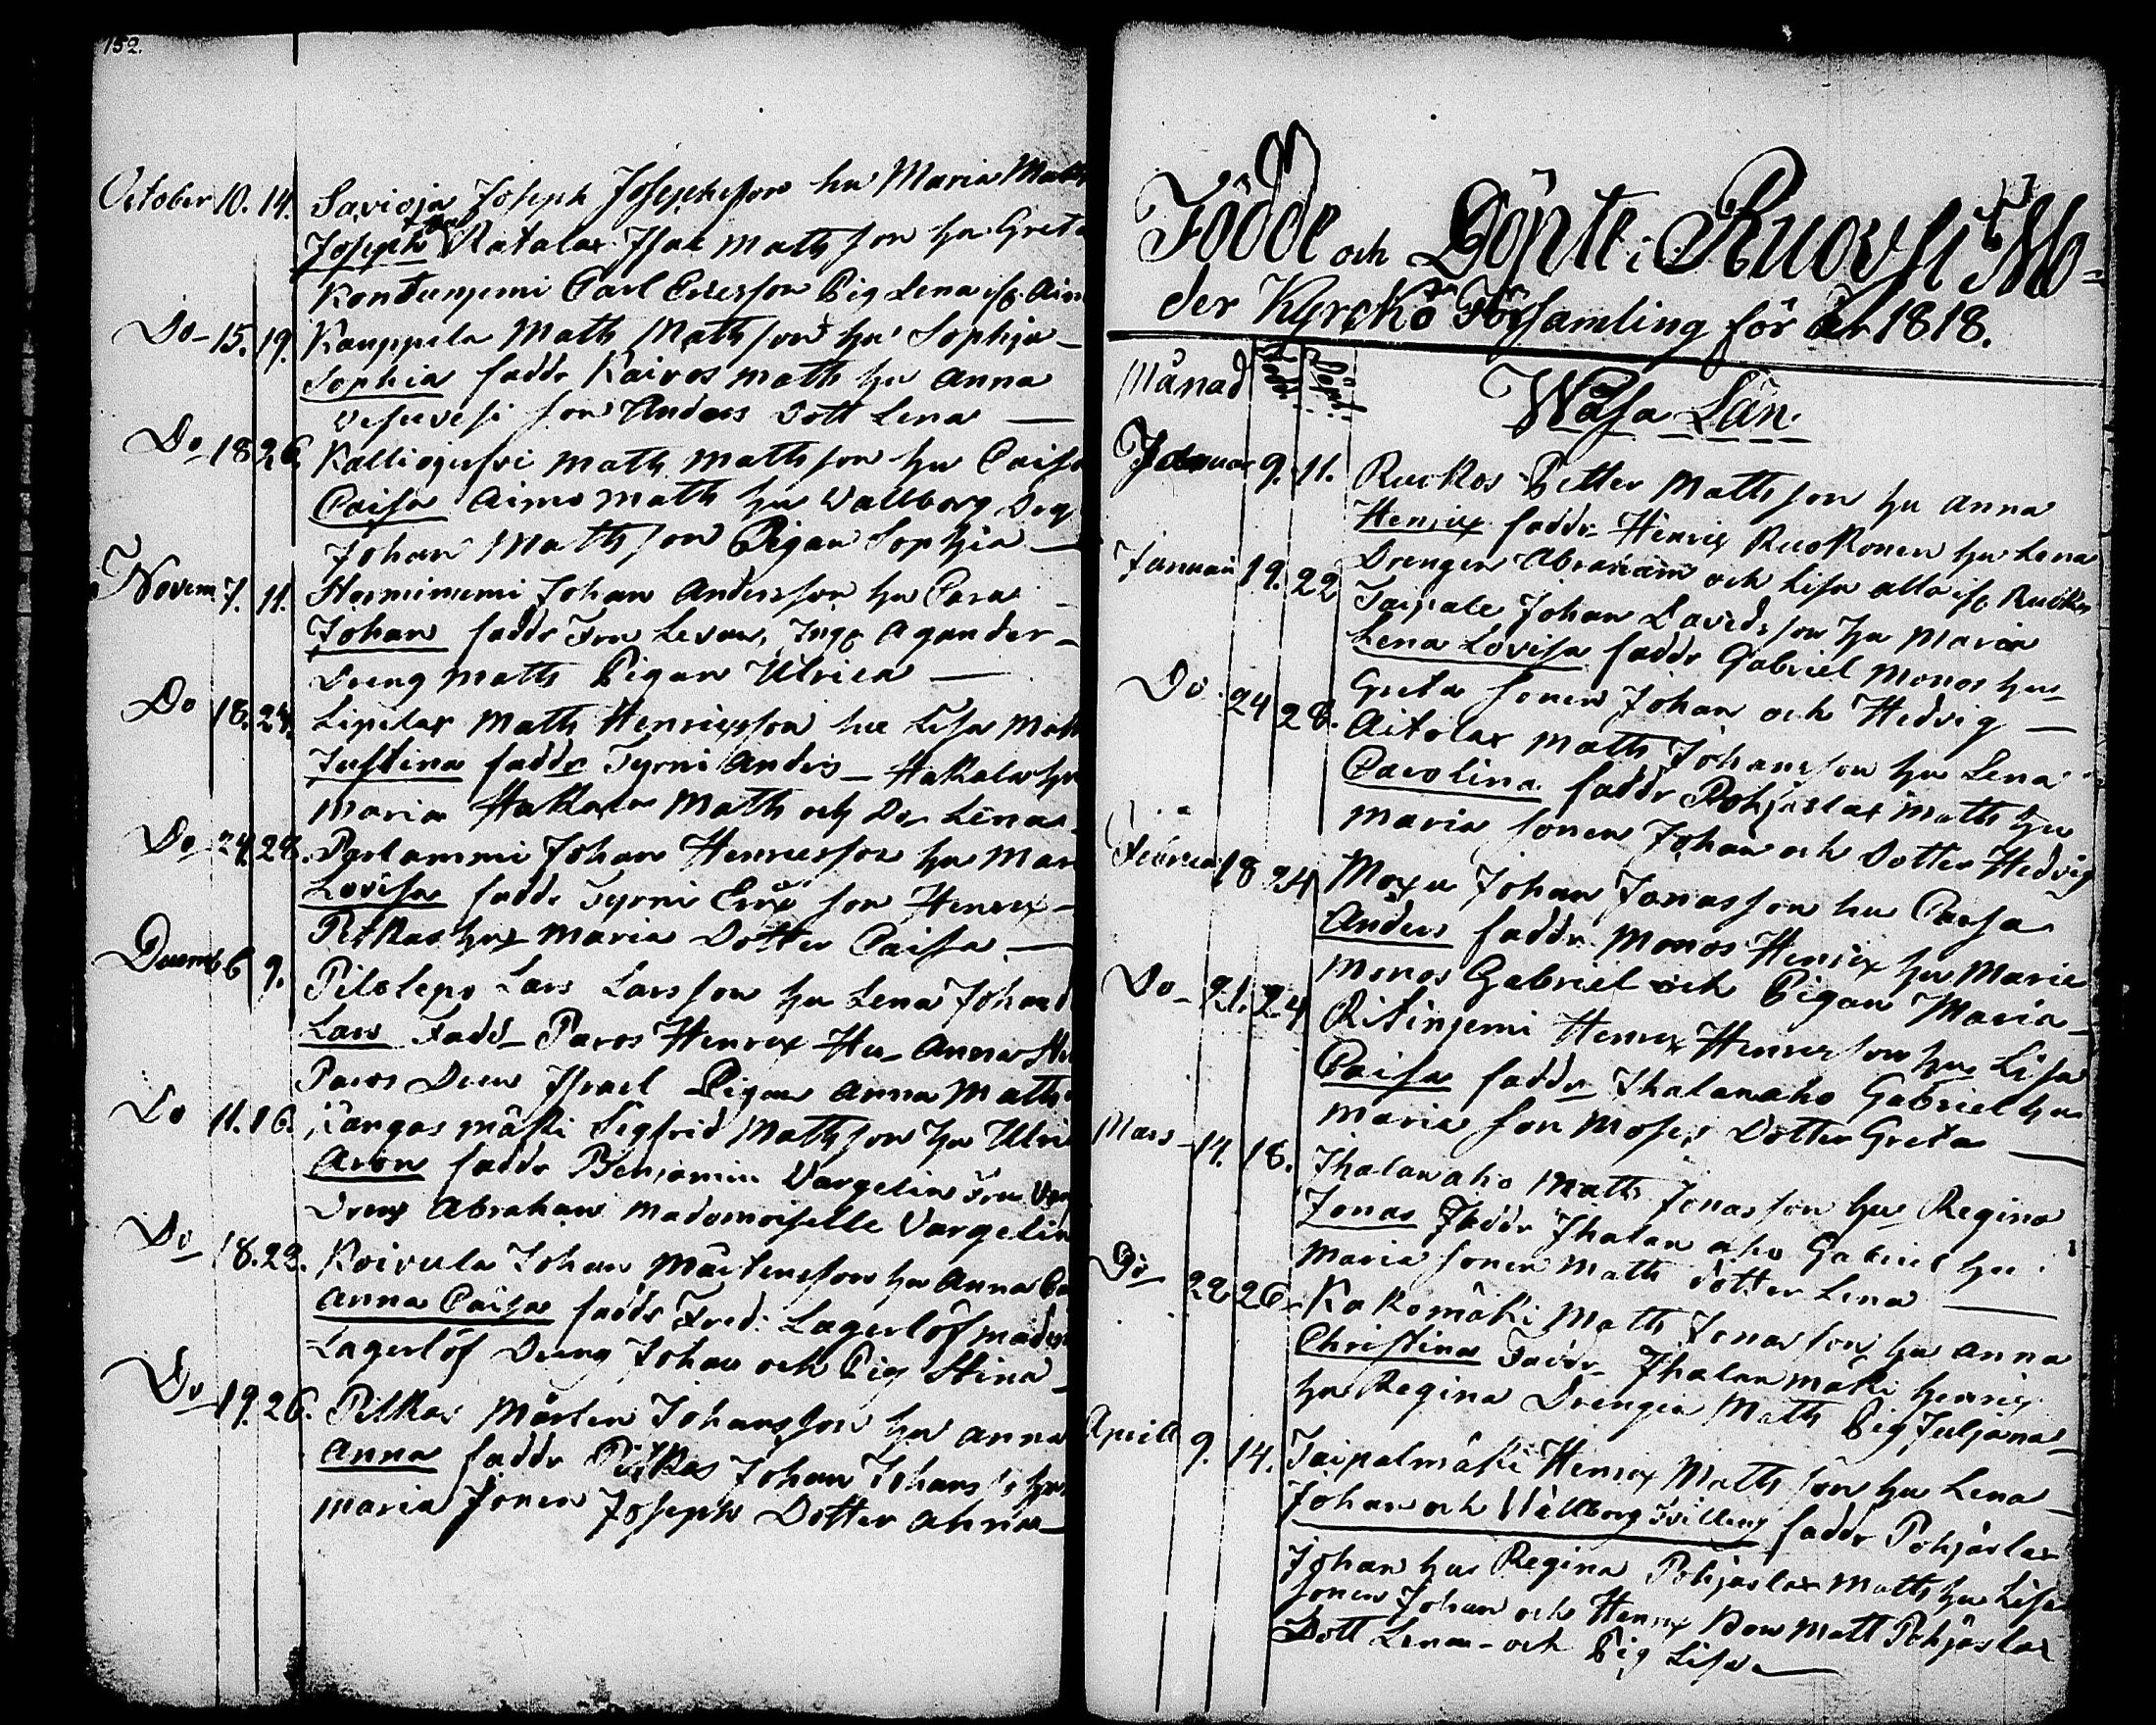 152.
October 10. 14. Savioja Joseph Josephsson hu Maria Matts
Joseph Ratalax Isac Matts son hu Greta
Kontunjemi Carl Ericsson Pig Lena
Do 15. 19. Kauppila Matts Matts son hu Sophia
Sophia fadd Kaivos Matts hu Anna
son Anders Dott Lena
Do 18 26. Kalliojerfvi Matts Matts son hu Caisa
Caisa Aimo Matts hu Wallborg Dreg
Johan Matts son Pigan Sophia
Novem 7. 11. Johan Andersson hu Cara
Johan fadd Fru Levan, Ingr Agander
Dreng Matts Pigan Ulrica
Do 18. 24. Matts Henricsson hu Lisa Matts
Justina fadd Tyrni Anders Hakala hu
Maria Hakala Matts och Do Lena
Do 24. 28. Parlammi Johan Henricsson hu Mar
Lovisa fadd Tyrni Eric son Henrix
Pitkas hu Maria Dotter Caisa
Decemb 6 9. Lars Lars son hu Lena Johand
Lars Fadd Paros Henrix Hu Anna
Paros Dren Israel Pigan Anna Matts
Do 11. 16. Kangas mäki Sigfrid Matts son hu Ulri
Aron fadd Benjamin Vargelin Fru
Dreng Abraham Mademoiselle Vargelin
Do 18. 22. Koivula Johan Mårtensson hu Anna Ca
Anna Caisa fadd Fred: Lagerlöf mades
Lagerlöf Dreng Johan och Pig Stina
Do 19. 26. Pitkas Mårten Johansson hu Anna
Anna fadd Pitkas Johan Johans s. hu
Maria Sonen Joseph Dotter Anna
Födde och Döpte i Ruovesi Mo=
der Kyrko Församling för År 1818.
Månad Född Döpt
Wasa Län
Januar 9. 11. Ruokos Petter Matts son hu Anna
Henrix fadd Henrix Ruokonen hu Lena
Drengen Abraham och Lisa alla if. Ruokos
Januari 19. 22 Taipale Johan Davids son hu Maria
Lena Lovisa fadd Gabriel Monos hu
Greta Sonen Johan och Hedvig
Do 24 28. Aitolax Matts Johansson hu Lena
Carolina fadd Pohjaslax Matts hu
Maria Sonen Johan och Dotter Hedvig
Februar 18 24 Moxu Johan Jonasson hu Caisa
Anders fadd Monos Henrix hu Maria
Monos Gabriel och Pigan Maria
Do 21. 24 Ritinjemi Henrix Henricsson hu Lisa
Caisa fadd Ihalanaho Gabriel hu
Maria Son Moses Dotter Greta
Mars 14. 18. Ihalanaho Matts Jonasson hu Regina
Jonas Fadd Ihalan aho Gabriel hu
Maria Sonen Matts Dotter Lena
Do 22 26. Kokomäki Matts Jonasson hu Anna
Christina Fadd Ihalanmäki Henrix
hu Regina Drengen Matts Pig Juljana
Aprill 9. 14. Taipalmäki Henrix Matts son hu Lena
Johan och Wallborg Tvilling fadd Pohjaslax
Johan hu Regina Pohjaslax Matts hu Lisa
Sonen Johan och Henrix Matt Pohjaslax
Dott Lena och Pig Lisa